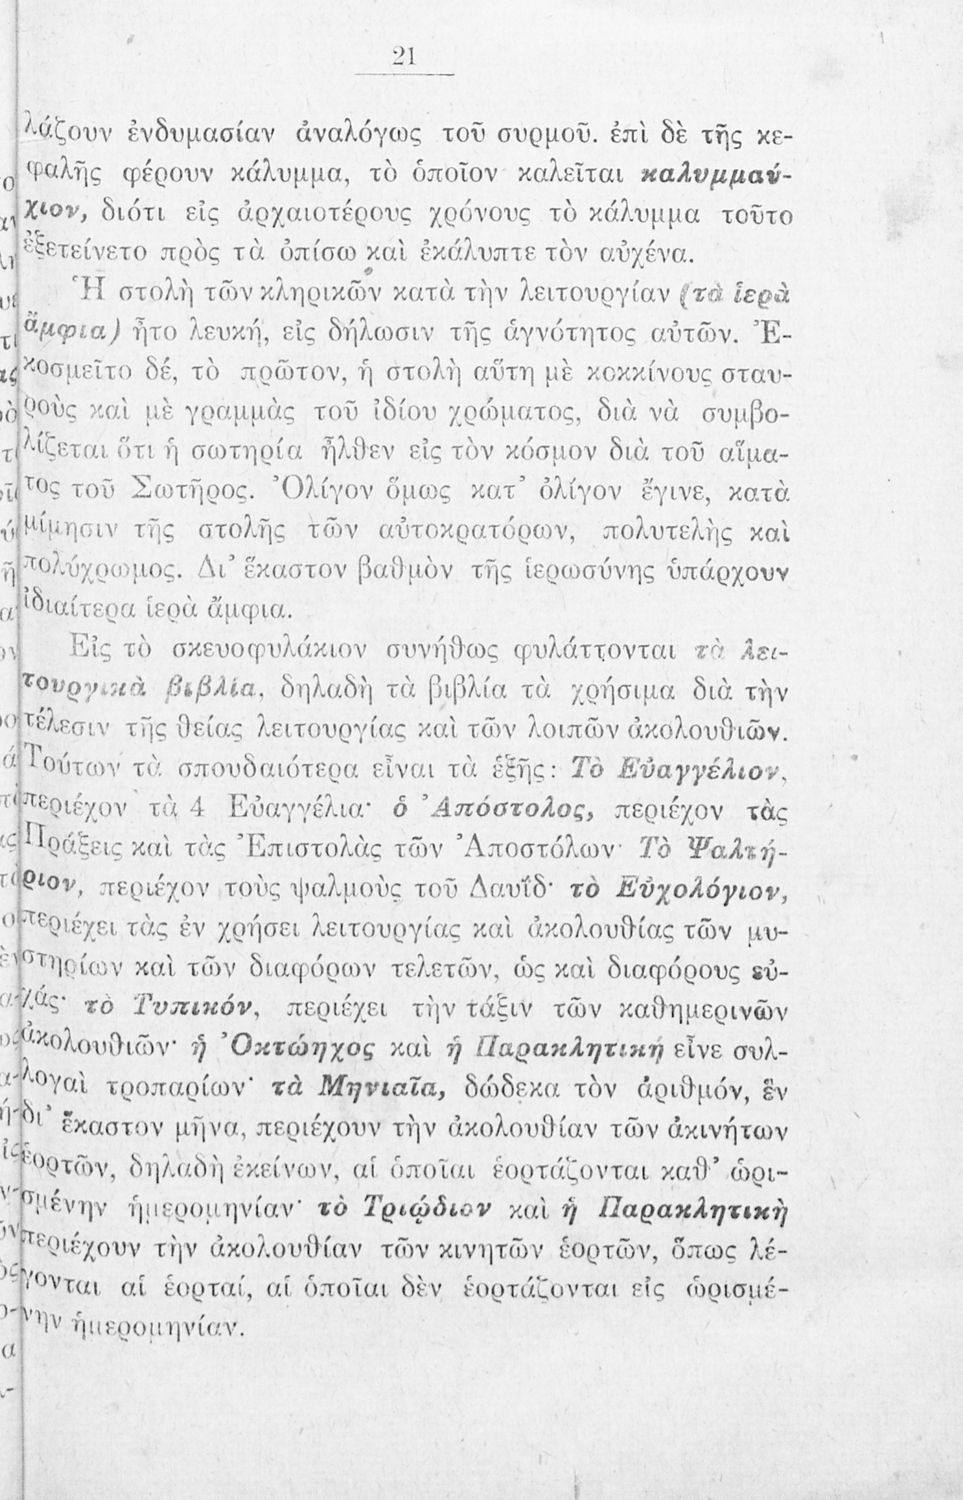 21
λάζουν ἐνδυμασίαν ἀναλόγως τοῦ συρμοῦ. ἐπὶ δὲ τῆς κε-
φαλῆς φέρουν κάλυμμα, τὸ ὁποῖον καλεῖται καλυμμαύ-
χιον, διότι εἰς ἀρχαιοτέρους χρόνους τὸ κάλυμμα τοῦτο
ἐξετείνετο πρὸς τὰ ὀπίσω καὶ ἐκάλυπτε τὸν αὐχένα.
Ἡ στολὴ τῶν κληρικῶν κατὰ τὴν λειτουργίαν (τὰ ἱερὰ
ἄμφια) ἦτο λευκή, εἰς δήλωσιν τῆς ἁγνότητος αὐτῶν. Ἐ-
κοσμεῖτο δέ, τὸ πρῶτον, ἡ στολὴ αὕτη μὲ κοκκίνους σταυ-
ροὺς καὶ μὲ γραμμὰς τοῦ ἰδίου χρώματος, διὰ νὰ συμβο-
λίζεται ὅτι ἡ σωτηρία ἦλθεν εἰς τὸν κόσμον διὰ τοῦ αἵμα-
τος τοῦ Σωτῆρος. Ὀλίγον ὅμως κατ’ ὀλίγον ἔγινε, κατὰ
μίμησιν τῆς στολῆς τῶν αὐτοκρατόρων, πολυτελὴς καὶ
πολύχρωμος. Δι’ ἕκαστον βαθμὸν τῆς ἱερωσύνης ὑπάρχουν
ἰδιαίτερα ἱερὰ ἄμφια.
Εἰς τὸ σκευοφυλάκιον συνήθως φυλάττονται τὰ λει-
τουργικὰ βιβλία, δηλαδὴ τὰ βιβλία τὰ χρήσιμα διὰ τὴν
τέλεσιν τῆς θείας λειτουργίας καὶ τῶν λοιπῶν ἀκολουθιῶν.
Τούτων τὰ σπουδαιότερα εἶναι τὰ ἑξῆς: Τὸ Εὐαγγέλιον,
περιέχον τὰ 4 Εὐαγγέλια· ὁ Ἀπόστολος, περιέχον τὰς
Πράξεις καὶ τὰς Ἐπιστολὰς τῶν Ἀποστόλων· Τὸ Ψαλτή-
ριον, περιέχον τοὺς ψαλμοὺς τοῦ Δαυῒδ· τὸ Εὐχολόγιον,
περιέχει τὰς ἐν χρήσει λειτουργίας καὶ ἀκολουθίας τῶν μυ-
στηρίων καὶ τῶν διαφόρων τελετῶν, ὡς καὶ διαφόρους εὐ-
χάς· τὸ Τυπικόν, περιέχει τὴν τάξιν τῶν καθημερινῶν
ἀκολουθιῶν· ἡ Ὀκτώηχος καὶ ἡ Παρακλητικὴ εἶνε συλ-
λογαὶ τροπαρίων· τὰ Μηνιαῖα, δώδεκα τὸν ἀριθμόν, ἓν
δι’ ἕκαστον μῆνα, περιέχουν τὴν ἀκολουθίαν τῶν ἀκινήτων
ἑορτῶν, δηλαδὴ ἐκείνων, αἱ ὁποῖαι ἑορτάζονται καθ’ ὡρι-
σμένην ἡμερομηνίαν· τὸ Τριῴδιον καὶ ἡ Παρακλητικὴ
περιέχουν τὴν ἀκολουθίαν τῶν κινητῶν ἑορτῶν, ὅπως λέ-
γονται αἱ ἑορταί, αἱ ὁποῖαι δὲν ἑορτάζονται εἰς ὡρισμέ-
νην ἡμερομηνίαν.